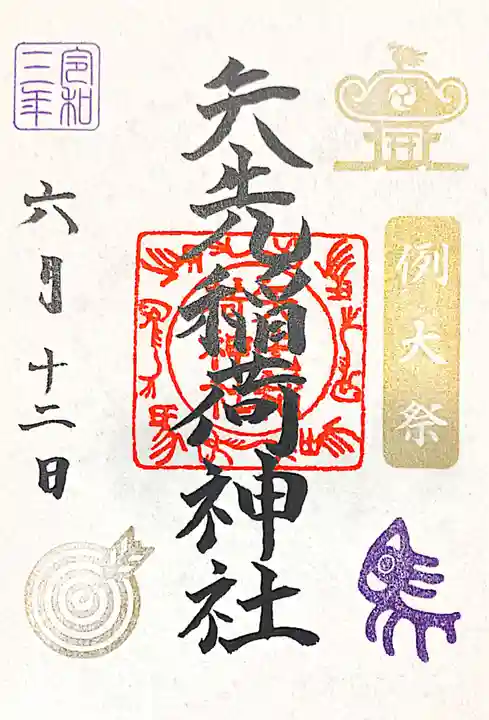 例大祭
矢先稲荷神社
令和
三年
六月十二日